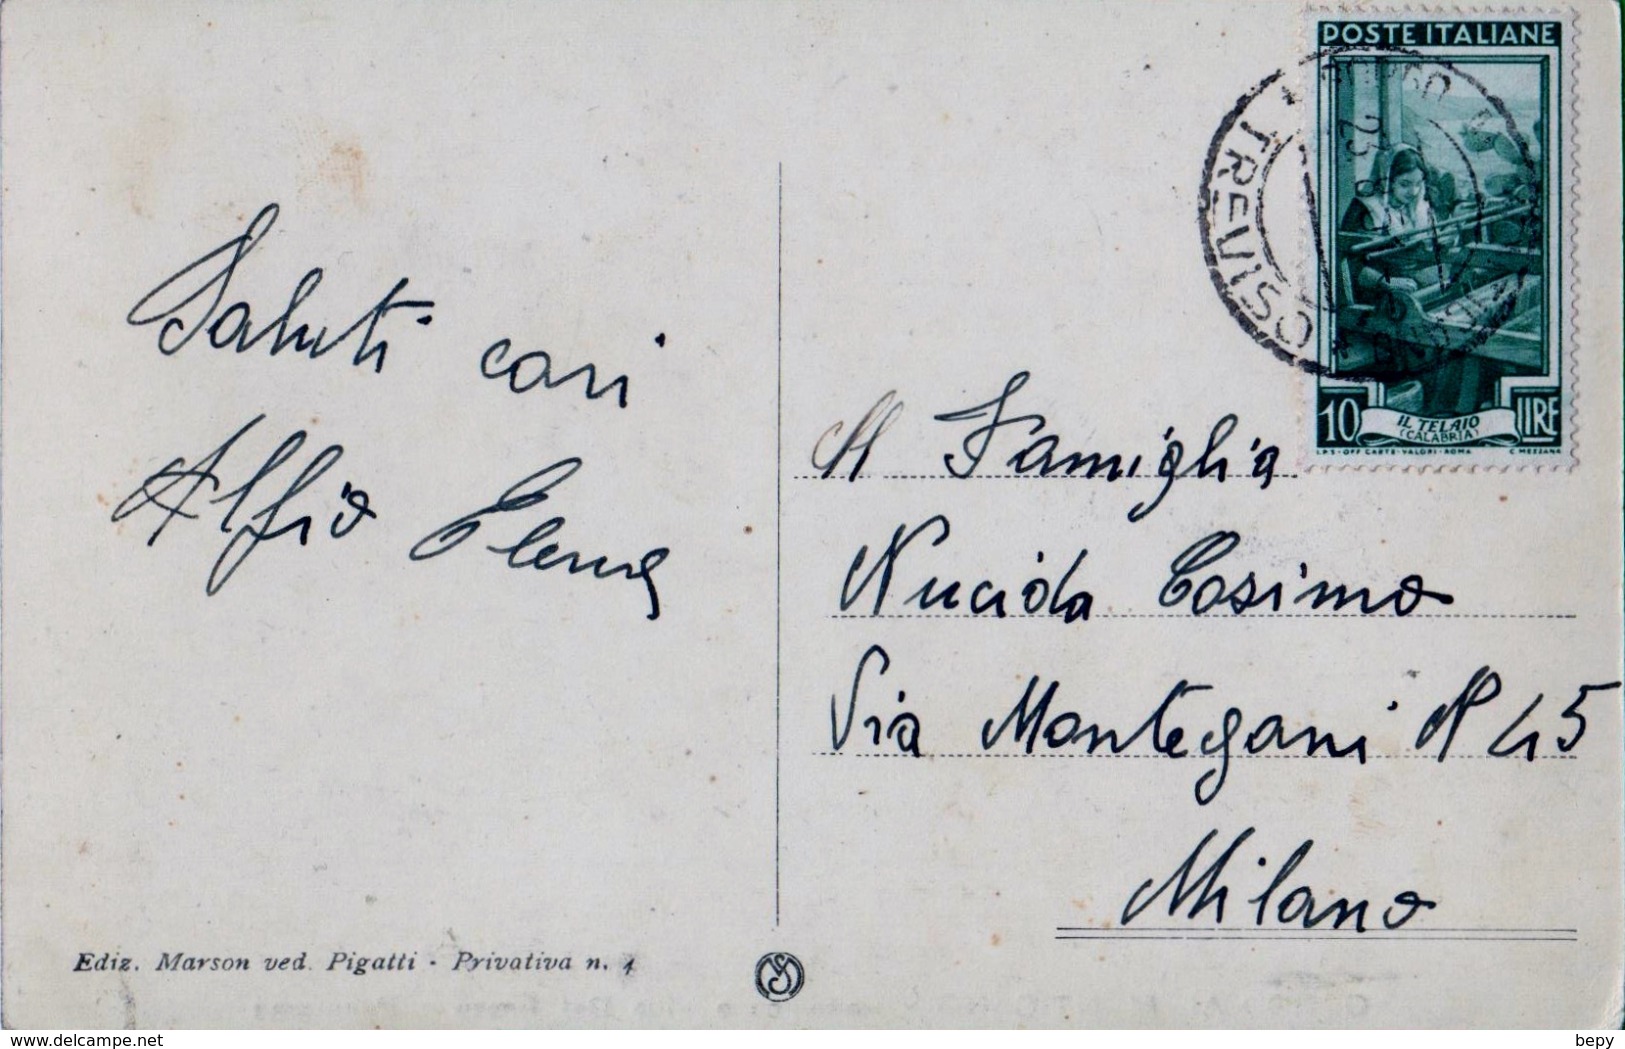 POSTE ITALIANE
TREVISO
10 LIRE
IL TELAIO
(CALABRIA)
I.P.S-OFF CARTE-VALORI-ROMA C MEZZANA
Saluti cari
Alfio Elena
Famiglia
Nucida Cosimo
Via Montegani N 45
Milano
Ediz. Marson ved. Pigatti - Privativa n. 1
delcampe.net
bepy